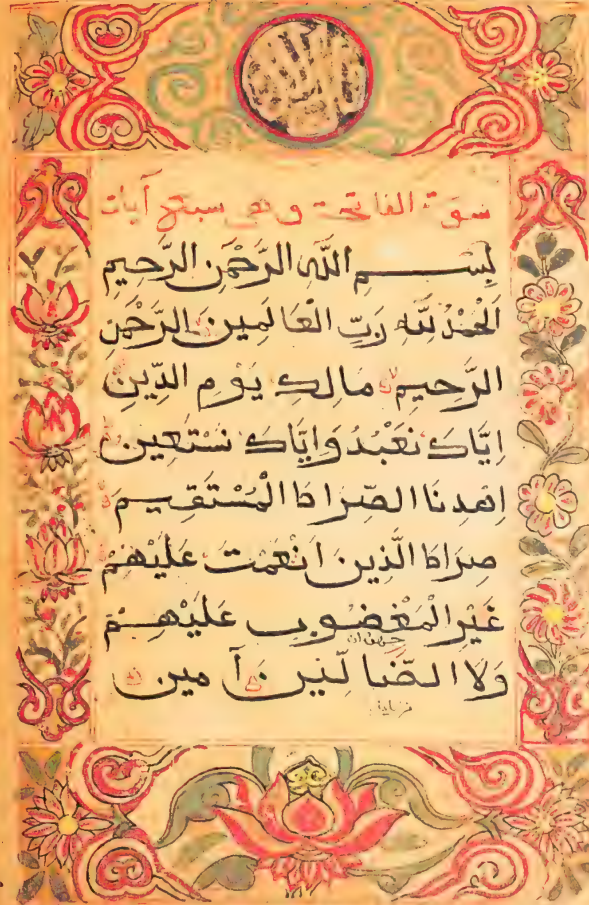 سورة الفاتحة وهي سبع آيات
بِسْــــمِ اللّٰهِ الرَّحْمٰنِ الرَّحِيمِ
اَلْحَمْدُ لِلّٰهِ رَبِّ الْعَالَمِينَ الرَّحْمٰنِ
الرَّحِيمِ مَالِكِ يَوْمِ الدِّينِ
اِيَّاكَ نَعْبُدُ وَاِيَّاكَ نَسْتَعِينُ
اِهْدِنَا الصِّرَاطَ الْمُسْتَقِيمَ
صِرَاطَ الَّذِينَ اَنْعَمْتَ عَلَيْهِمْ
غَيْرِ الْمَغْضُوبِ عَلَيْهِمْ
وَلَا الضَّالِّينَ آمين